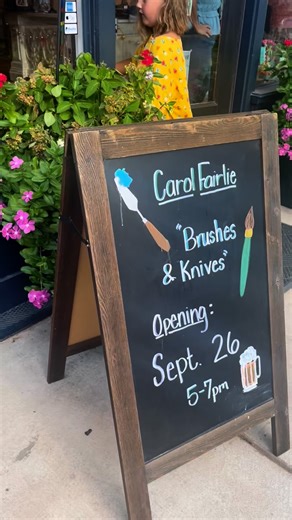 Carol Fairlie
"Brushes
& Knives"
Opening:
Sept. 26
5-7pm